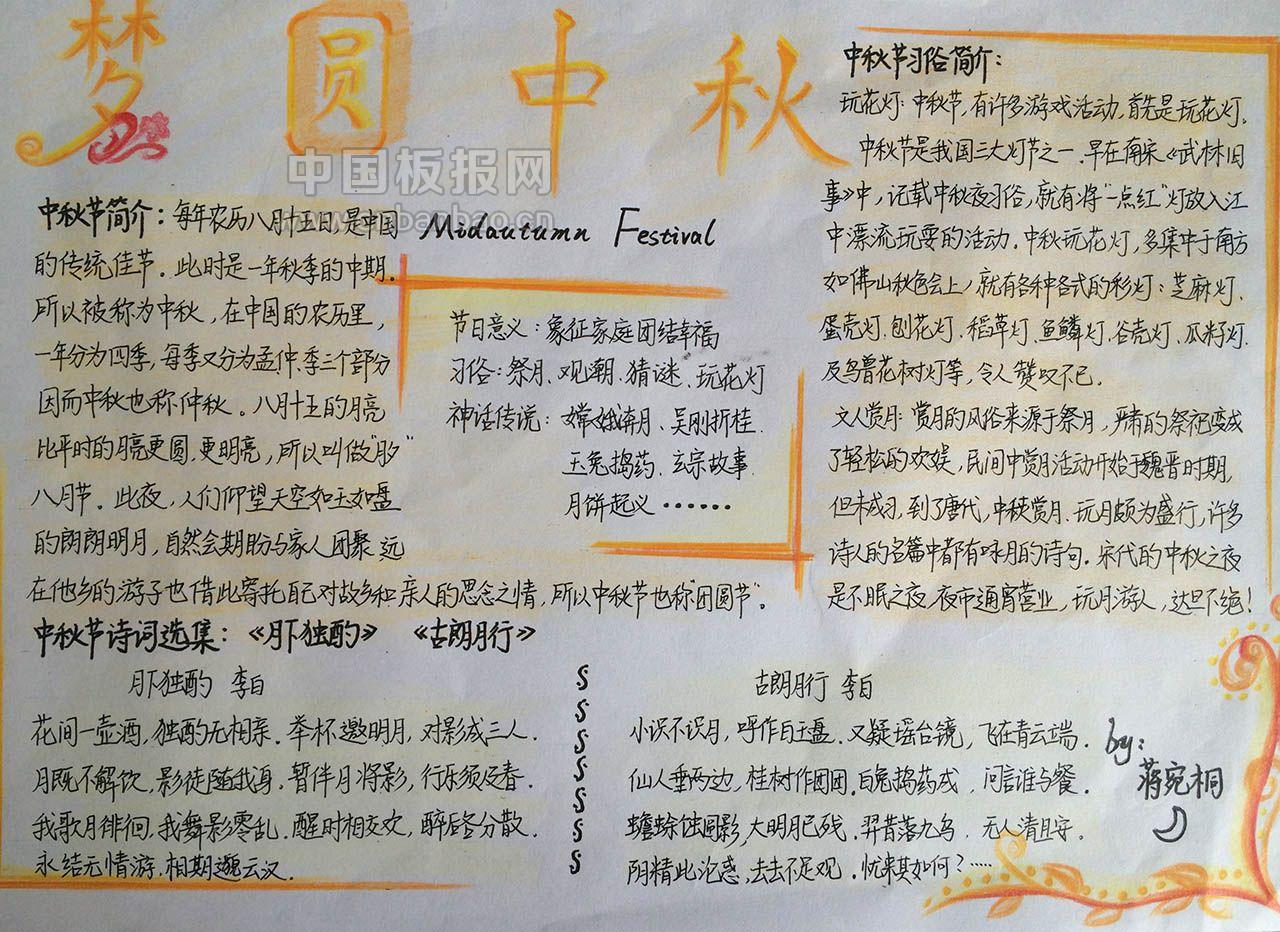 梦圆中秋
中国板报网
中秋节简介：每年农历八月十五日，是中国
的传统佳节．此时是一年秋季的中期．
所以被称为中秋，在中国的农历里，
一年分为四季，每季又分为孟、仲、季三个部分
因而中秋也称仲秋。八月十五的月亮
比平时的月亮更圆，更明亮，所以叫做"月夕"
八月节．此夜，人们仰望天空如玉如盘
的朗朗明月，自然会期盼与家人团聚．远
在他乡的游子也借此寄托自己对故乡和亲人的思念之情，所以中秋节也称"团圆节"。
Midautumn Festival
节日意义：象征家庭团结幸福
习俗：祭月、观潮、猜谜、玩花灯
神话传说：嫦娥奔月、吴刚折桂．
玉兔捣药、玄宗故事．
月饼起义······
中秋节习俗简介：
玩花灯：中秋节，有许多游戏活动，首先是玩花灯．
中秋节是我国三大灯节之一．早在南宋《武林旧
事》中，记载中秋夜习俗，就有将"一点红"灯放入江
中漂流玩耍的活动．中秋玩花灯，多集中于南方
如佛山秋色会上，就有各种各式的彩灯：芝麻灯、
蛋壳灯、刨花灯、稻草灯、鱼鳞灯、谷壳灯、瓜籽灯、
及鸟兽花树灯等，令人赞叹不已．
文人赏月：赏月的风俗来源于祭月，严肃的祭祀变成
了轻松的欢娱，民间中赏月活动开始于魏晋时期，
但未成习，到了唐代，中秋赏月、玩月颇为盛行，许多
诗人的名篇中都有咏月的诗句．宋代的中秋之夜
是不眠之夜．夜市通宵营业，玩月游人，达旦不绝！
中秋节诗词选集：《月下独酌》 《古朗月行》
月下独酌 李白
花间一壶酒，独酌无相亲．举杯邀明月，对影成三人．
月既不解饮，影徒随我身．暂伴月将影，行乐须及春．
我歌月徘徊，我舞影零乱．醒时相交欢，醉后各分散．
永结无情游，相期邈云汉．
古朗月行 李白
小识不识月，呼作白玉盘．又疑瑶台镜，飞在青云端．
仙人垂两边，桂树作团团．白兔捣药成，问言谁与餐．
蟾蜍蚀圆影，大明月已残．羿昔落九乌，无人清且安．
阴精此沦惑，去去不足观．忧来其如何？……
by：
蒋宛桐